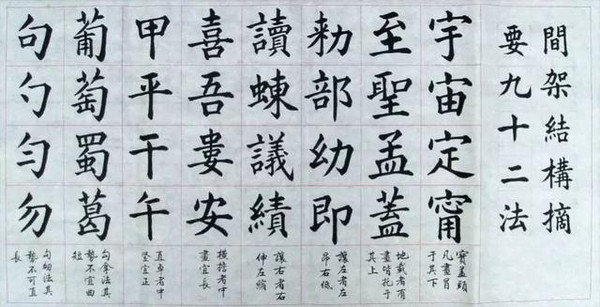 間架結構摘
要九十二法
宇宙定甯
寶蓋頭
凡畫冒
于其下
至聖孟蓋
地載者有
畫皆托于
其上
勅部幼即
讓左者左
昂右低
讀蝀議績
讓右者右
伸左縮
喜吾婁安
橫擔者中
畫宜長
甲平干午
直卓者中
竪宜正
葡萄蜀葛
句拿法其
勢不宜曲
短
句勺勻勿
句法其
勢不可直
長